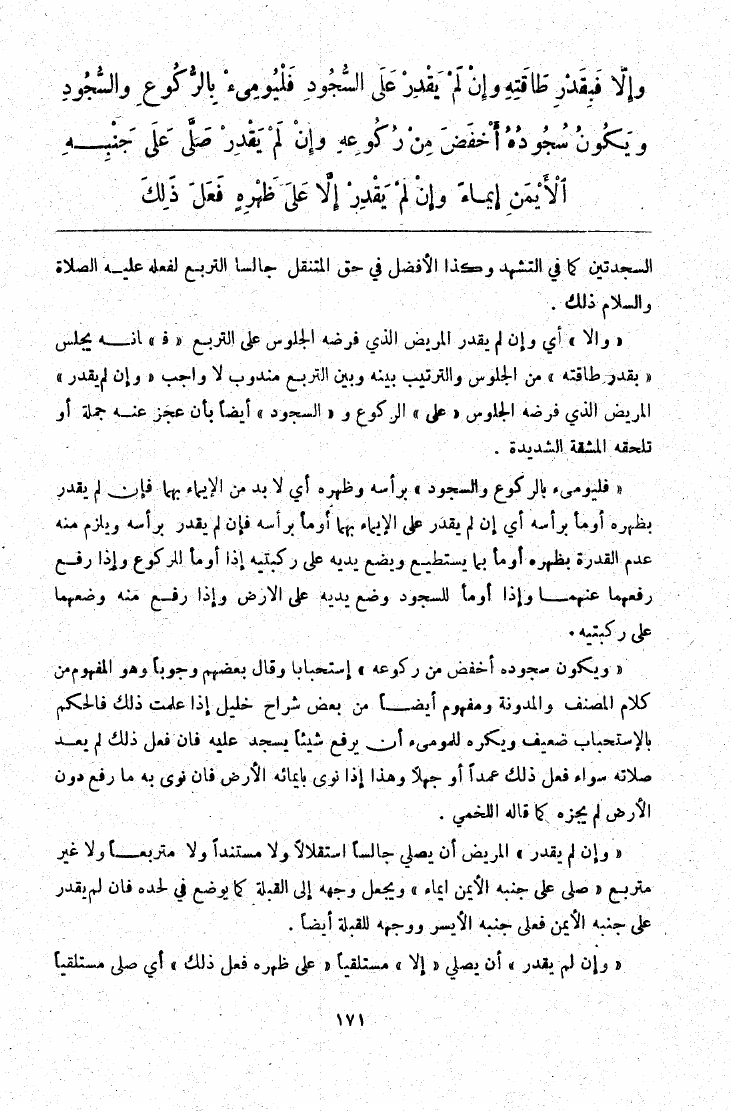 وإلَّا فَبِقَدْرِ طَاقَتِهِ وإنْ لَمْ يَقْدِرْ عَلَى السُّجُودِ فَلْيُومِىءْ بِالرُّكُوعِ والسُّجُودِ
وَيَكُونُ سُجُودُهُ أَخْفَضَ مِنْ رُكُوعِهِ وإنْ لَمْ يَقْدِرْ صَلَّى عَلَى جَنْبِـــهِ
اَلْأَيْمَنِ إِيمَاءً وإنْ لَمْ يَقْدِرْ إلَّا عَلَى ظَهْرِهِ فَعَلَ ذَلِكَ
السجدتين كما في التشهد وكذا الأفضل في حق المتنفل جالسا التربع لفعله عليه الصلاة
والسلام ذلك .
« والا » أي وإن لم يقدر المريض الذي فرضه الجلوس على التربع « ف » انه يجلس
« بقدر طاقته » من الجلوس والترتيب بينه وبين التربع مندوب لا واجب « وإن لم يقدر »
المريض الذي فرضه الجلوس « على » الركوع و « السجود » أيضاً بأن عجز عنه جملة أو
تلحقه المشقة الشديدة .
« فليومىء بالركوع والسجود » برأسه وظهره أي لا بد من الإيماء بهما فإن لم يقدر
بظهره أومأ برأسه أي إن لم يقدر على الإيماء بهما أومأ برأسه فإن لم يقدر برأسه ويلزم منه
عدم القدرة بظهره أومأ بما يستطيع ويضع يديه على ركبتيه إذا أومأ للركوع وإذا رفع
رفعهما عنهما وإذا أومأ للسجود وضع يديه على الارض وإذا رفع منه وضعهما
على ركبتيه .
« ويكون سجوده أخفض من ركوعه » إستحبابا وقال بعضهم وجوباً وهو المفهوم من
كلام المصنف والمدونة ومفهوم أيضاً من بعض شراح خليل إذا علمت ذلك فالحكم
بالإستحباب ضعيف ويكره للمومىء أن يرفع شيئاً يسجد عليه فان فعل ذلك لم يعد
صلاته سواء فعل ذلك عمداً أو جهلاً وهذا إذا نوى بايمائه الأرض فان نوى به ما رفع دون
الأرض لم يجزه كما قاله اللخمي .
« وإن لم يقدر » المريض أن يصلي جالساً استقلالاً ولا مستنداً ولا متربعاً ولا غير
متربع « صلى على جنبه الأيمن ايماء » ويجعل وجهه إلى القبلة كما يوضع في لحده فان لم يقدر
على جنبه الأيمن فعلى جنبه الأيسر ووجهه للقبلة أيضاً .
« وإن لم يقدر » أن يصلي « إلا » مستلقياً « على ظهره فعل ذلك » أي صلى مستلقياً
١٧١